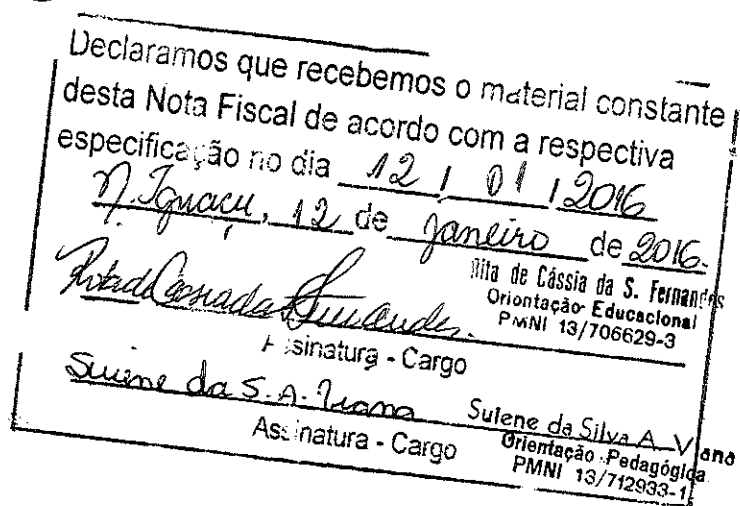 Declaramos que recebemos o material constante
desta Nota Fiscal de acordo com a respectiva
especificação no dia 12 / 01 / 2016
N. Iguaçu, 12 de janeiro de 2016.
Rita de Cássia da S. Fernandes
Orientação Educacional
PMNI 13/706629-3
Rita de Cassia da S. Fernandes.
Assinatura - Cargo
Sulene da S. A. Viana
Sulene da Silva A. Viana
Orientação Pedagógica
PMNI 13/712933-1
Assinatura - Cargo